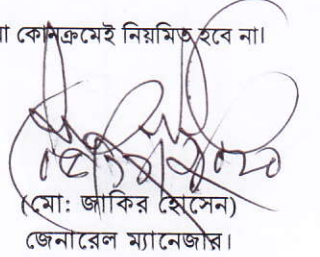 কোনক্রমেই নিয়মিত হবে না।
(মো: জাকির হোসেন)
জেনারেল ম্যানেজার।